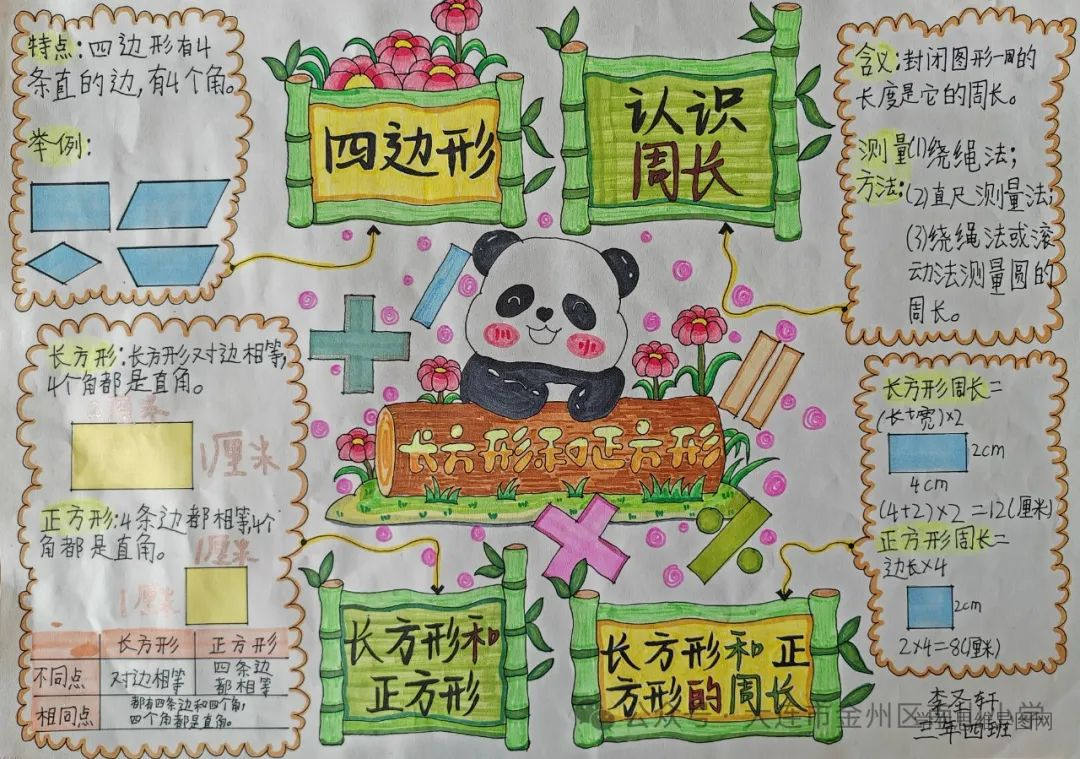 特点:四边形有4
条直的边,有4个角。
举例:
四边形
认识
周长
含义:封闭图形一周的
长度是它的周长。
测量(1)绕绳法;
方法:(2)直尺测量法;
(3)绕绳法或滚
动法测量圆的
周长。
长方形:长方形对边相等,
4个角都是直角。
厘米
1厘米
正方形:4条边都相等4个
角都是直角。
1厘米
1厘米
长方形 正方形
不同点 对边相等 四条边
都相等
相同点 都有四条边和四个角,
四个角都是直角。
长方形和正方形
长方形周长=
(长+宽)×2
2cm
4cm
(4+2)×2=12(厘米)
正方形周长=
边长×4
2cm
2×4=8(厘米)
长方形和
正方形
长方形和正
方形的周长
李圣轩
三年四班
公众号 大连市金州区